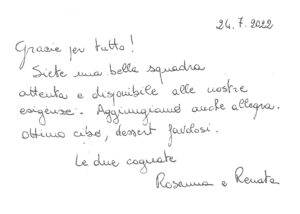 24.7.2022
Grazie per tutto!
Siete una bella squadra
attenta e disponibile alle nostre
esigenze. Aggiungiamo anche allegra.
Ottimo cibo, dessert favolosi.
Le due cognate
Rosanna e Renata